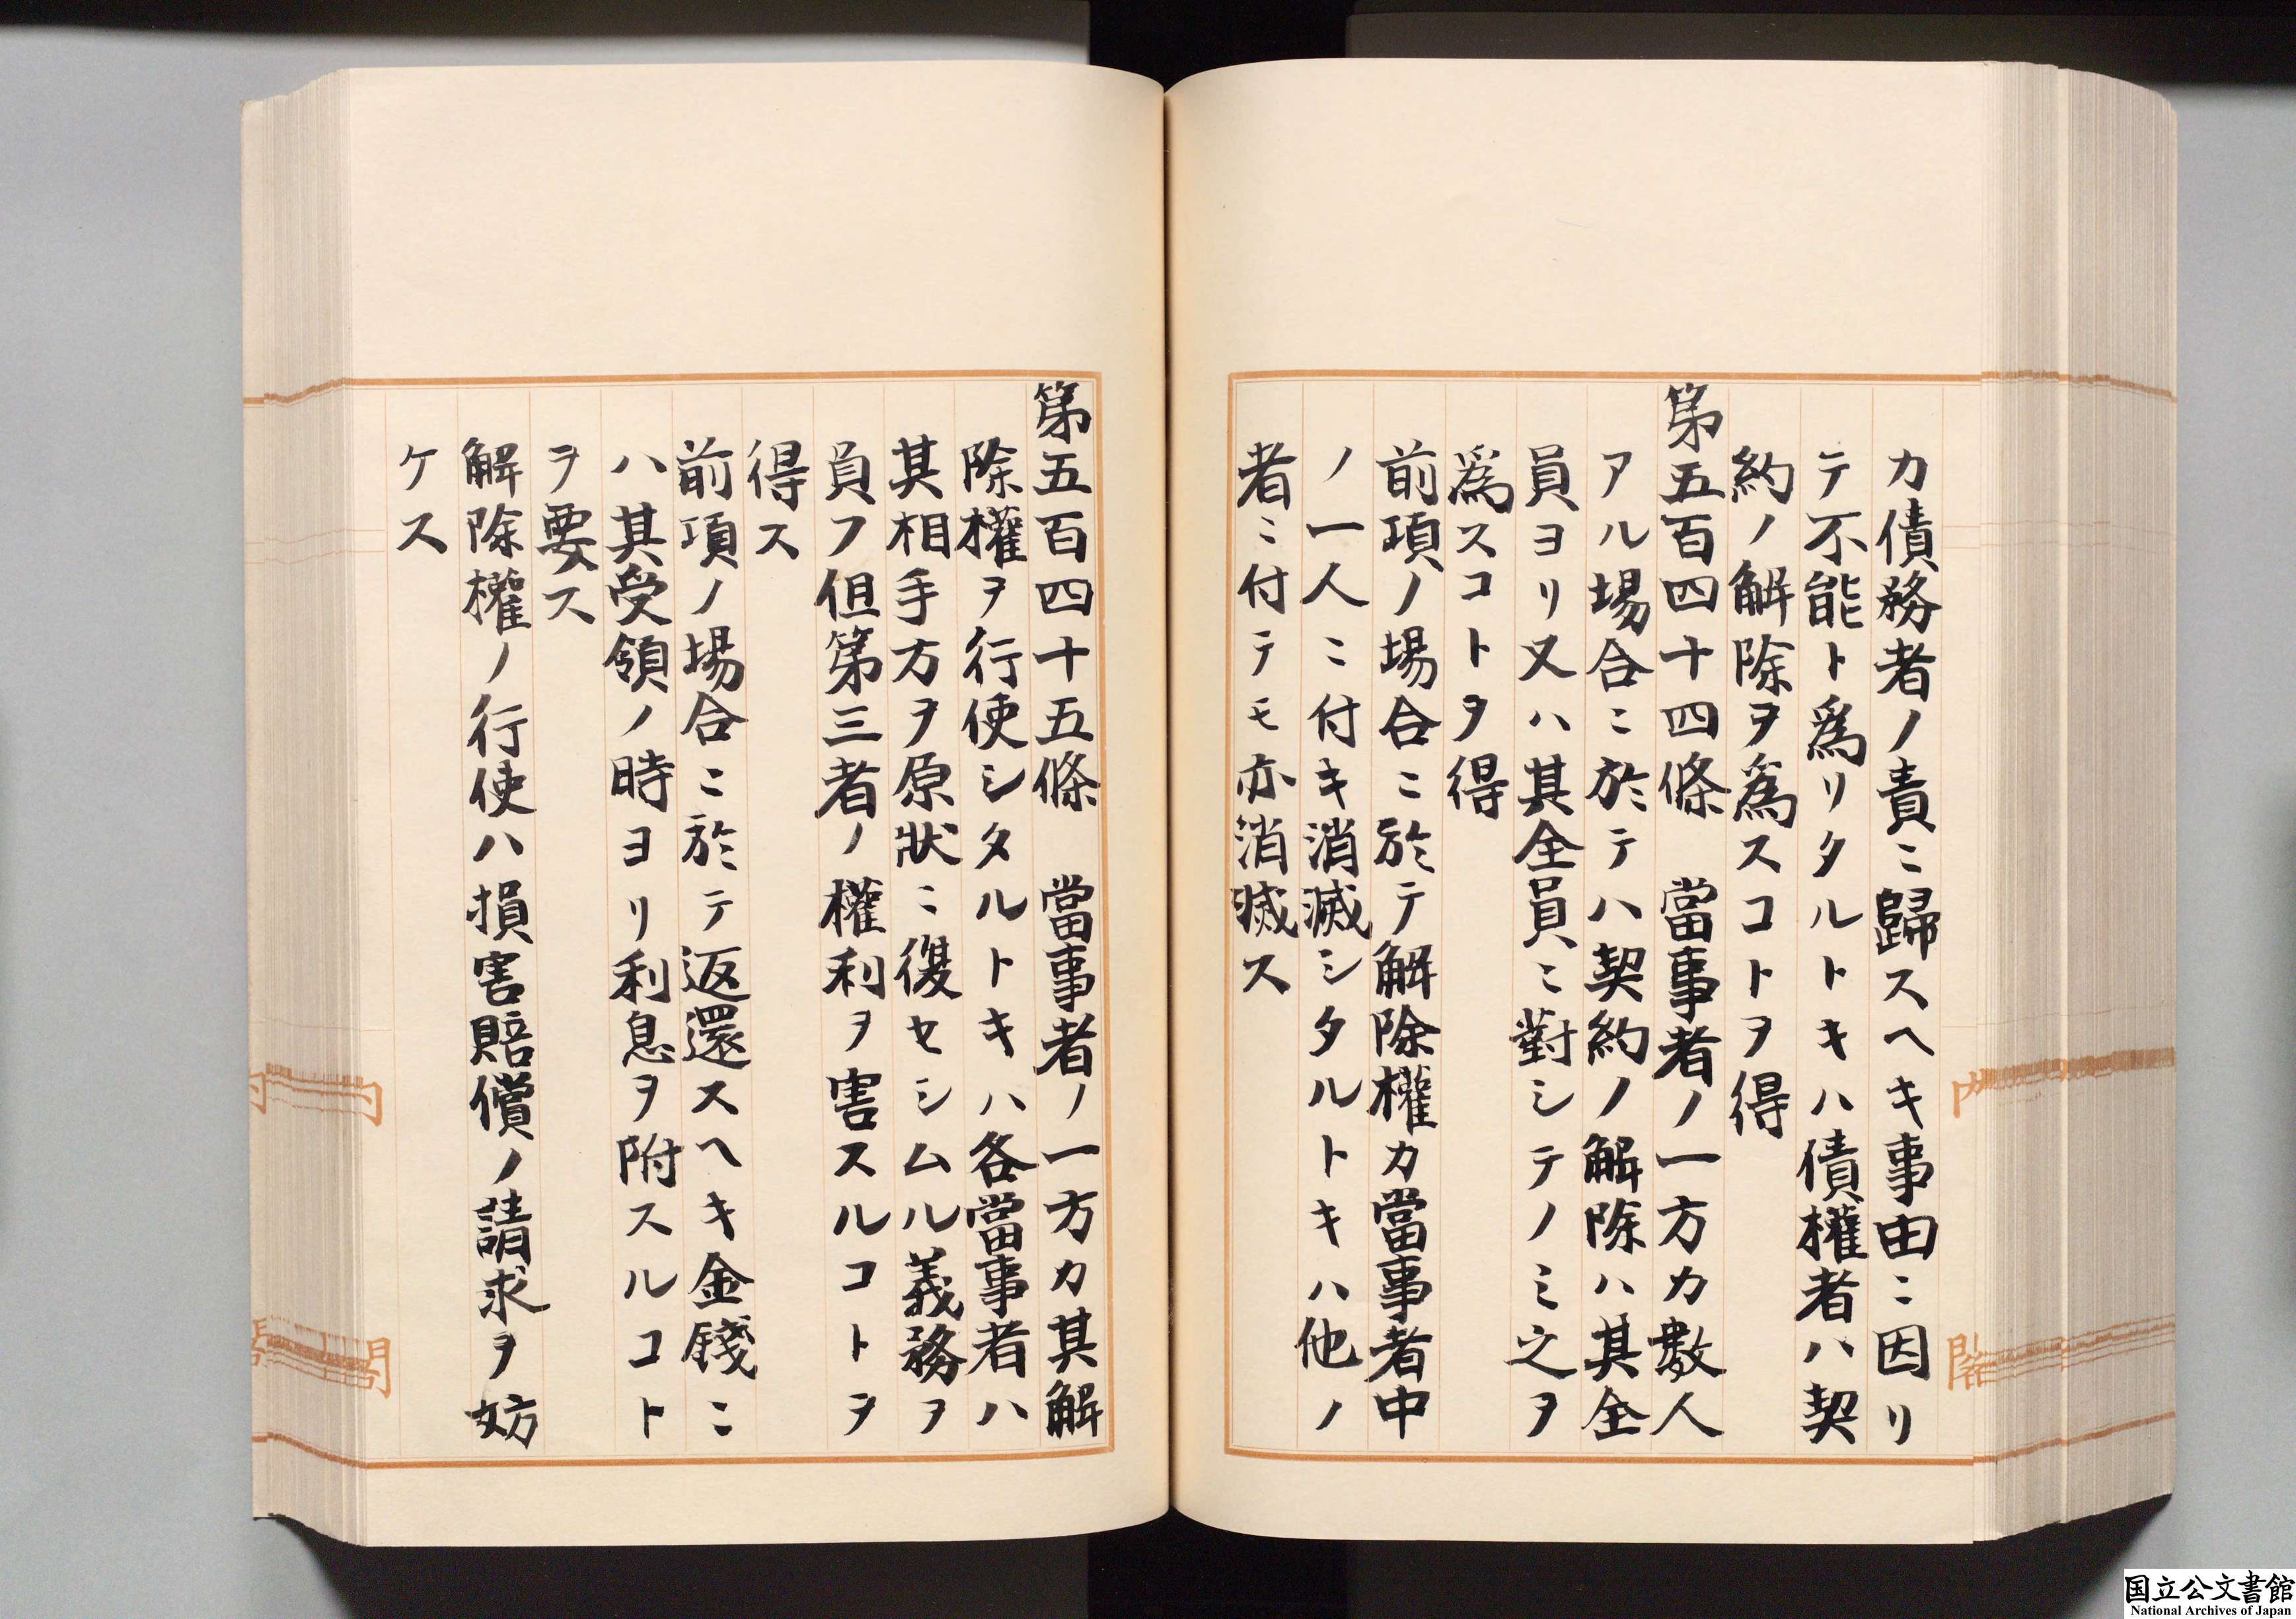 カ債務者ノ責ニ歸スヘキ事由ニ因リ
テ不能ト爲リタルトキハ債權者ハ契
約ノ解除ヲ爲スコトヲ得
第五百四十四條　當事者ノ一方カ數人
アル場合ニ於テハ契約ノ解除ハ其全
員ヨリ又ハ其全員ニ對シテノミ之ヲ
爲スコトヲ得
前項ノ場合ニ於テ解除權カ當事者中
ノ一人ニ付キ消滅シタルトキハ他ノ
者ニ付テモ亦消滅ス
第五百四十五條　當事者ノ一方カ其解
除權ヲ行使シタルトキハ各當事者ハ
其相手方ヲ原狀ニ復セシムル義務ヲ
負フ但第三者ノ權利ヲ害スルコトヲ
得ス
前項ノ場合ニ於テ返還スヘキ金錢ニ
ハ其受領ノ時ヨリ利息ヲ附スルコト
ヲ要ス
解除權ノ行使ハ損害賠償ノ請求ヲ妨
ケス
内
閣
国立公文書館
National Archives of Japan